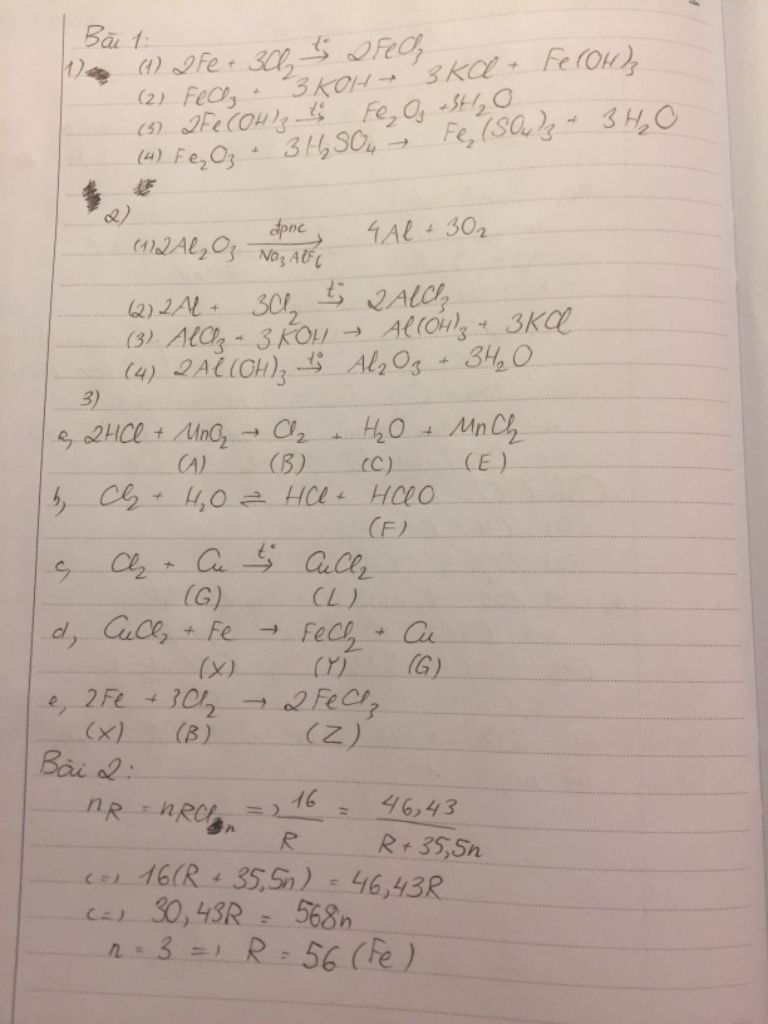 Bài 1:
1) (1) 2Fe + 3Cl₂ →(t°) 2FeCl₃
(2) FeCl₃ + 3KOH → 3KCl + Fe(OH)₃
(3) 2Fe(OH)₃ →(t°) Fe₂O₃ + 3H₂O
(4) Fe₂O₃ + 3H₂SO₄ → Fe₂(SO₄)₃ + 3H₂O
2)
(1) 2Al₂O₃ →(đpnc / Na₃AlF₆) 4Al + 3O₂
(2) 2Al + 3Cl₂ →(t°) 2AlCl₃
(3) AlCl₃ + 3KOH → Al(OH)₃ + 3KCl
(4) 2Al(OH)₃ →(t°) Al₂O₃ + 3H₂O
3)
a, 2HCl + MnO₂ → Cl₂ + H₂O + MnCl₂
(A) (B) (C) (E)
b, Cl₂ + H₂O ⇌ HCl + HClO
(F)
c, Cl₂ + Cu →(t°) CuCl₂
(G) (L)
d, CuCl₂ + Fe → FeCl₂ + Cu
(X) (Y) (G)
e, 2Fe + 3Cl₂ → 2FeCl₃
(X) (B) (Z)
Bài 2:
nR = nRClₙ => 16/R = 46,43/(R + 35,5n)
<=> 16(R + 35,5n) = 46,43R
<=> 30,43R = 568n
n = 3 => R = 56 (Fe)